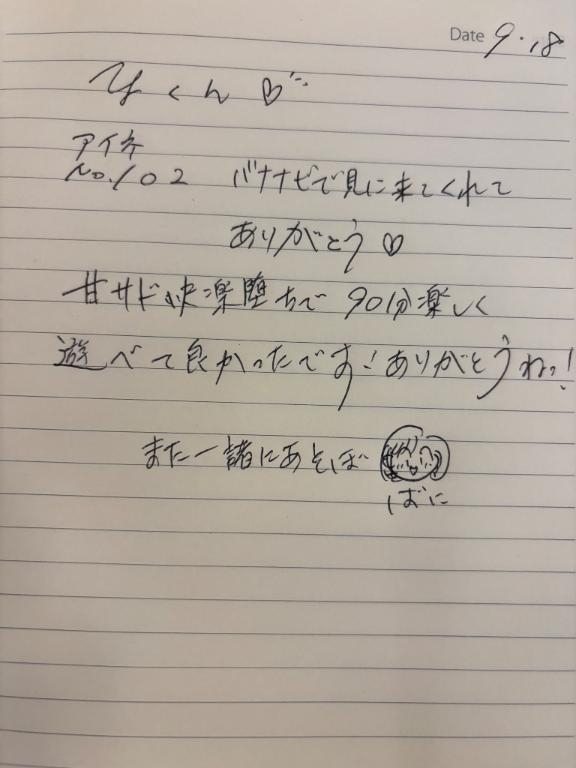 Date 9.18
ひくん♡
アイネ
No.102 バナナビで見に来てくれて
ありがとう♡
甘サド快楽堕ちで 90分楽しく
遊べて良かったです!ありがとうねっ!
また一緒にあそぼ
ばに